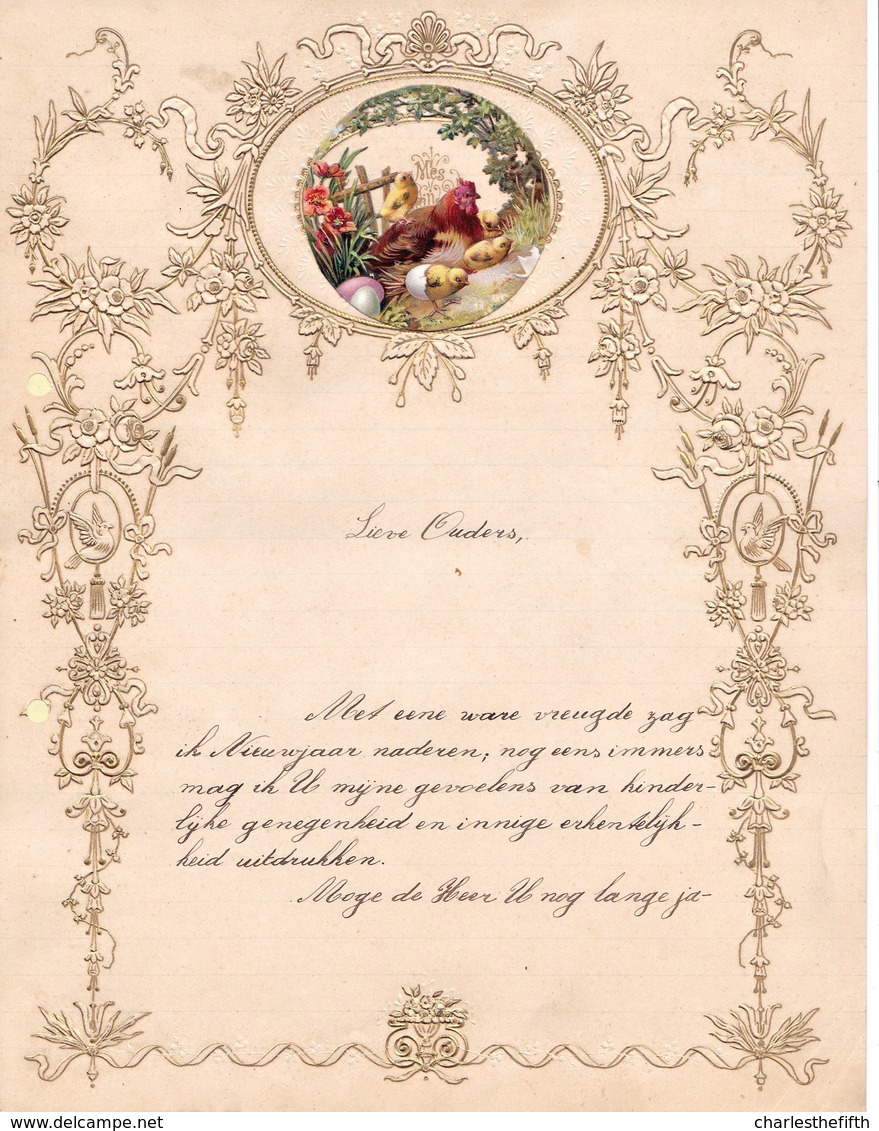 Mes
Lieve Ouders,
Met eene ware vreugde zag
ik Nieuwjaar naderen; nog eens immers
mag ik U mijne gevoelens van kinder-
lijke genegenheid en innige erkentelijk-
heid uitdrukken.
Moge de Heer U nog lange ja-
charlesthefifth